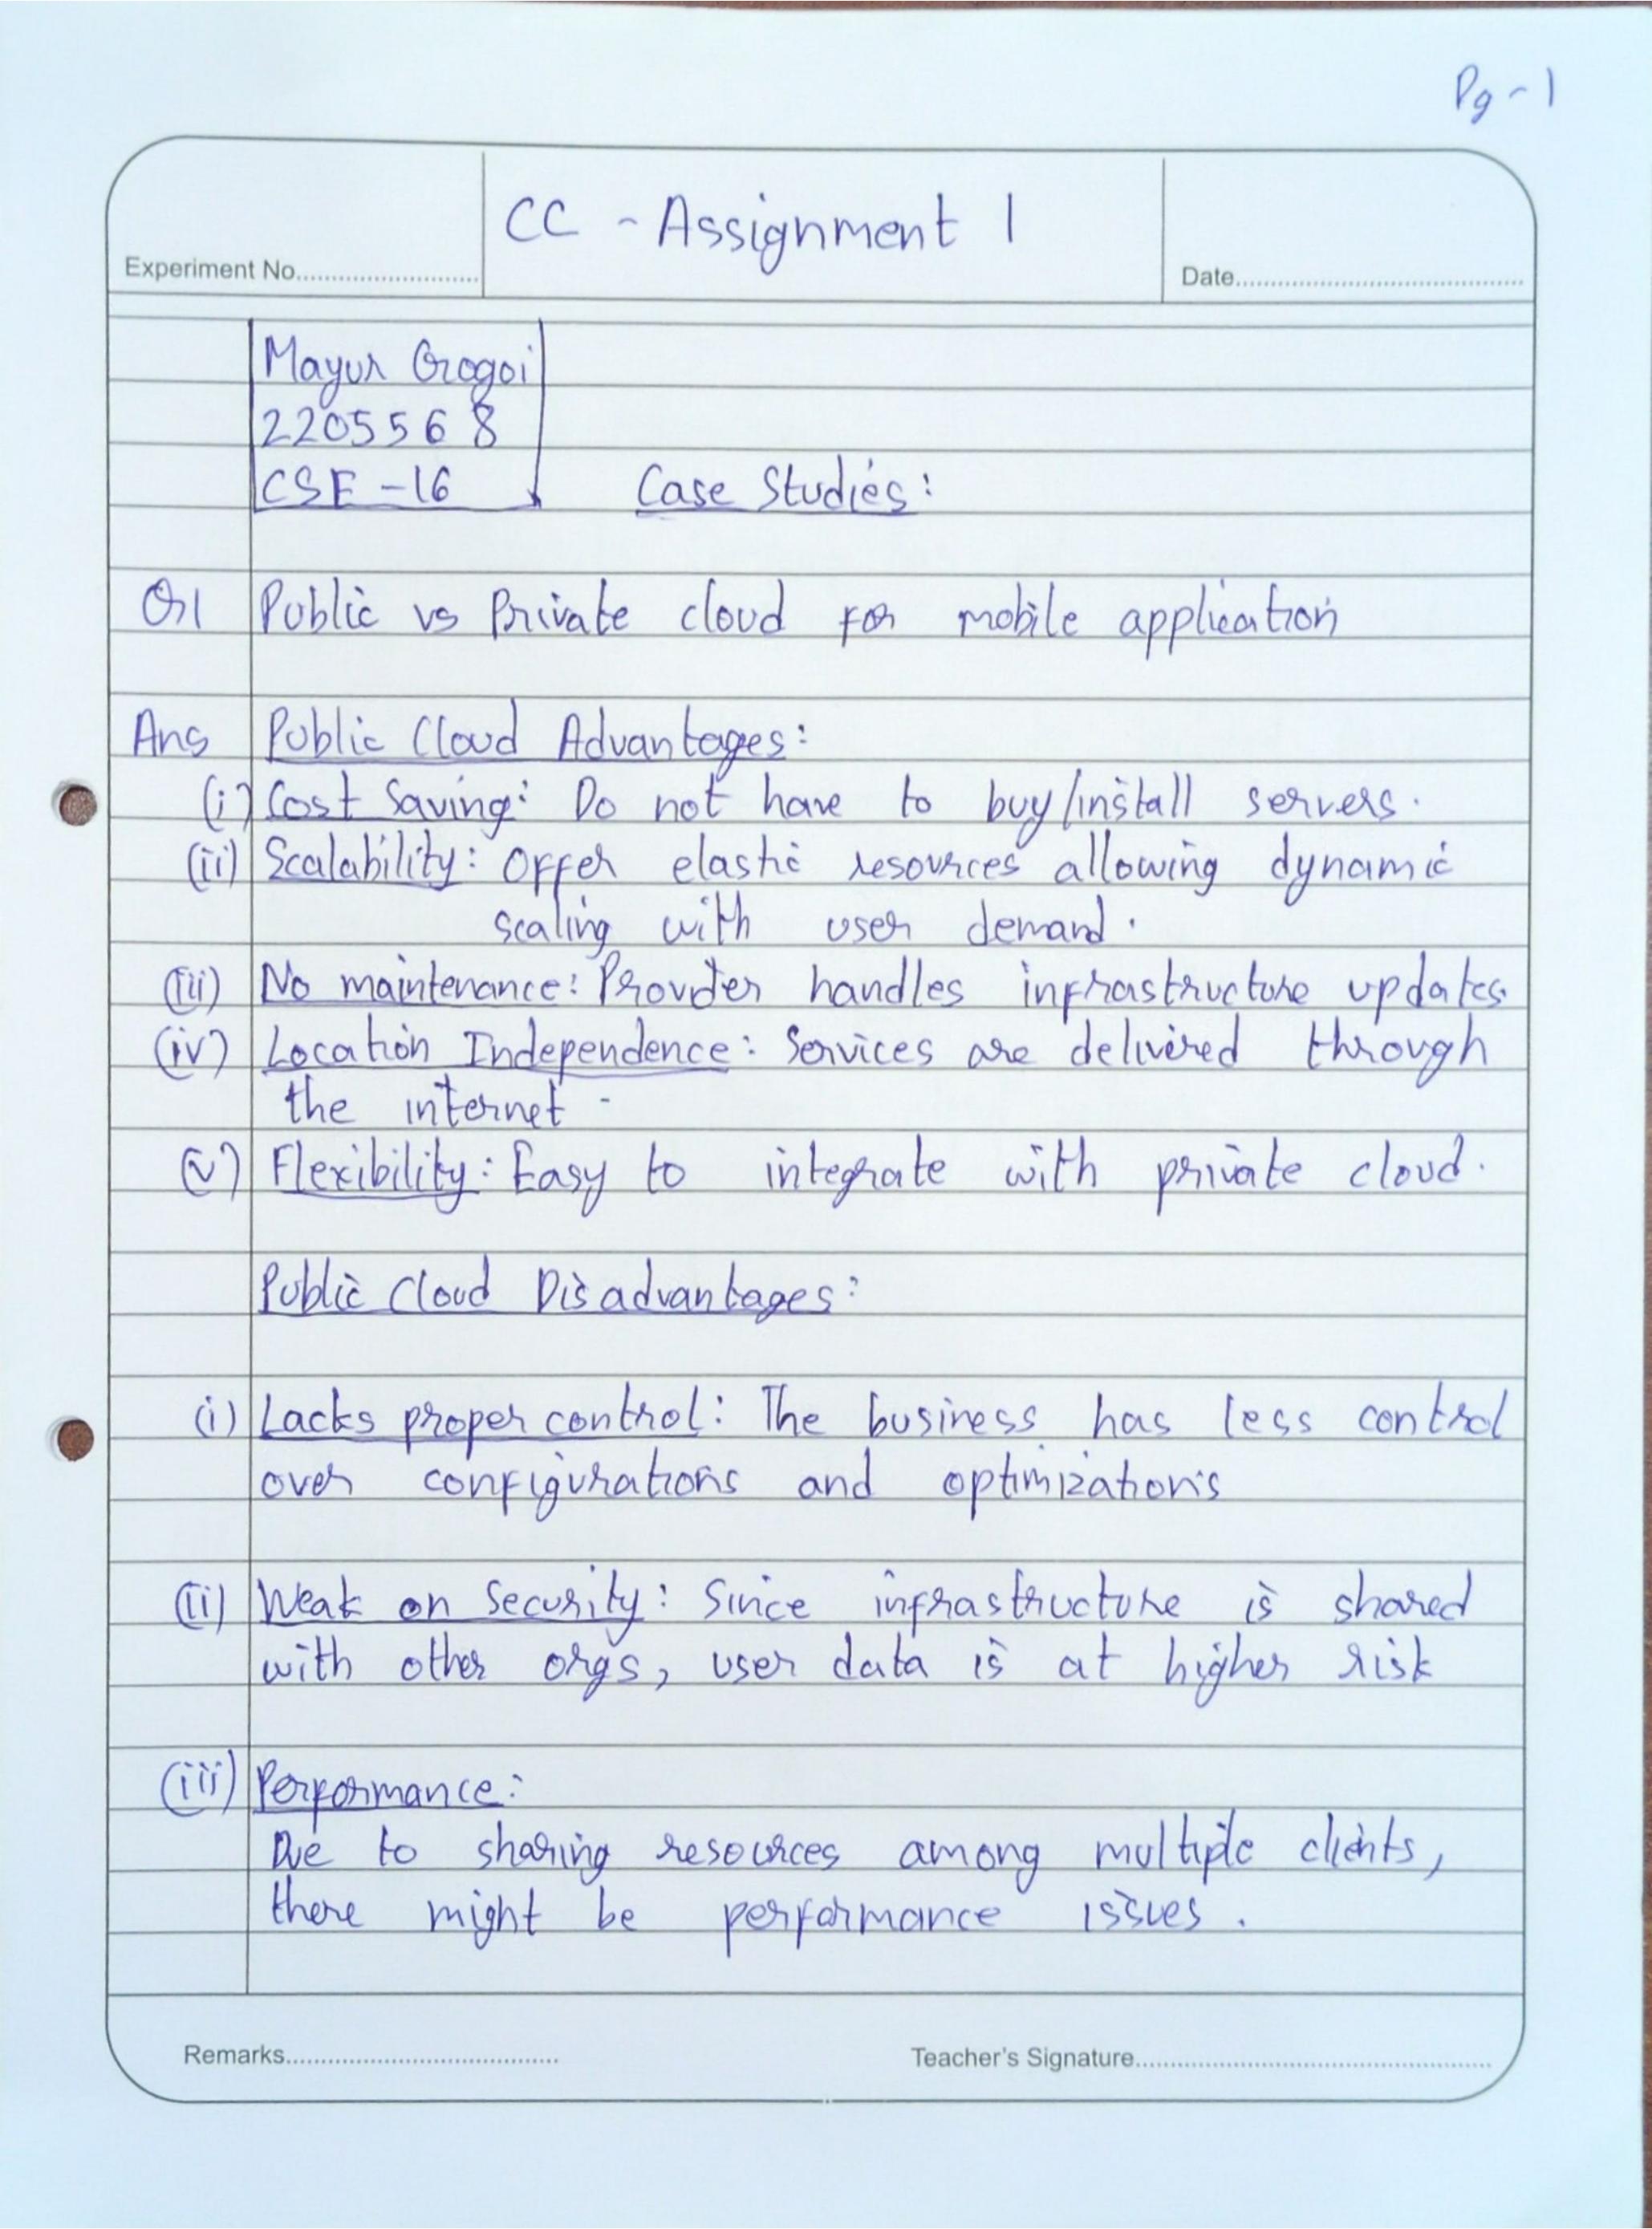 Pg - 1
CC - Assignment 1
Experiment No.......................... Date..........................................
Mayur Gogoi
2205568
CSE - 16
Case Studies:
Q1 Public vs Private cloud for mobile application
Ans Public Cloud Advantages:
(i) Cost Saving: Do not have to buy/install servers.
(ii) Scalability: Offer elastic resources allowing dynamic
scaling with user demand.
(iii) No maintenance: Provider handles infrastructure updates.
(iv) Location Independence: Services are delivered through
the internet -
(v) Flexibility: Easy to integrate with private cloud.
Public Cloud Disadvantages:
(i) Lacks proper control: The business has less control
over configurations and optimizations
(ii) Weak on Security: Since infrastructure is shared
with other orgs, user data is at higher risk
(iii) Performance:
Due to sharing resources among multiple clients,
there might be performance issues.
Remarks...................................... Teacher's Signature..................................................